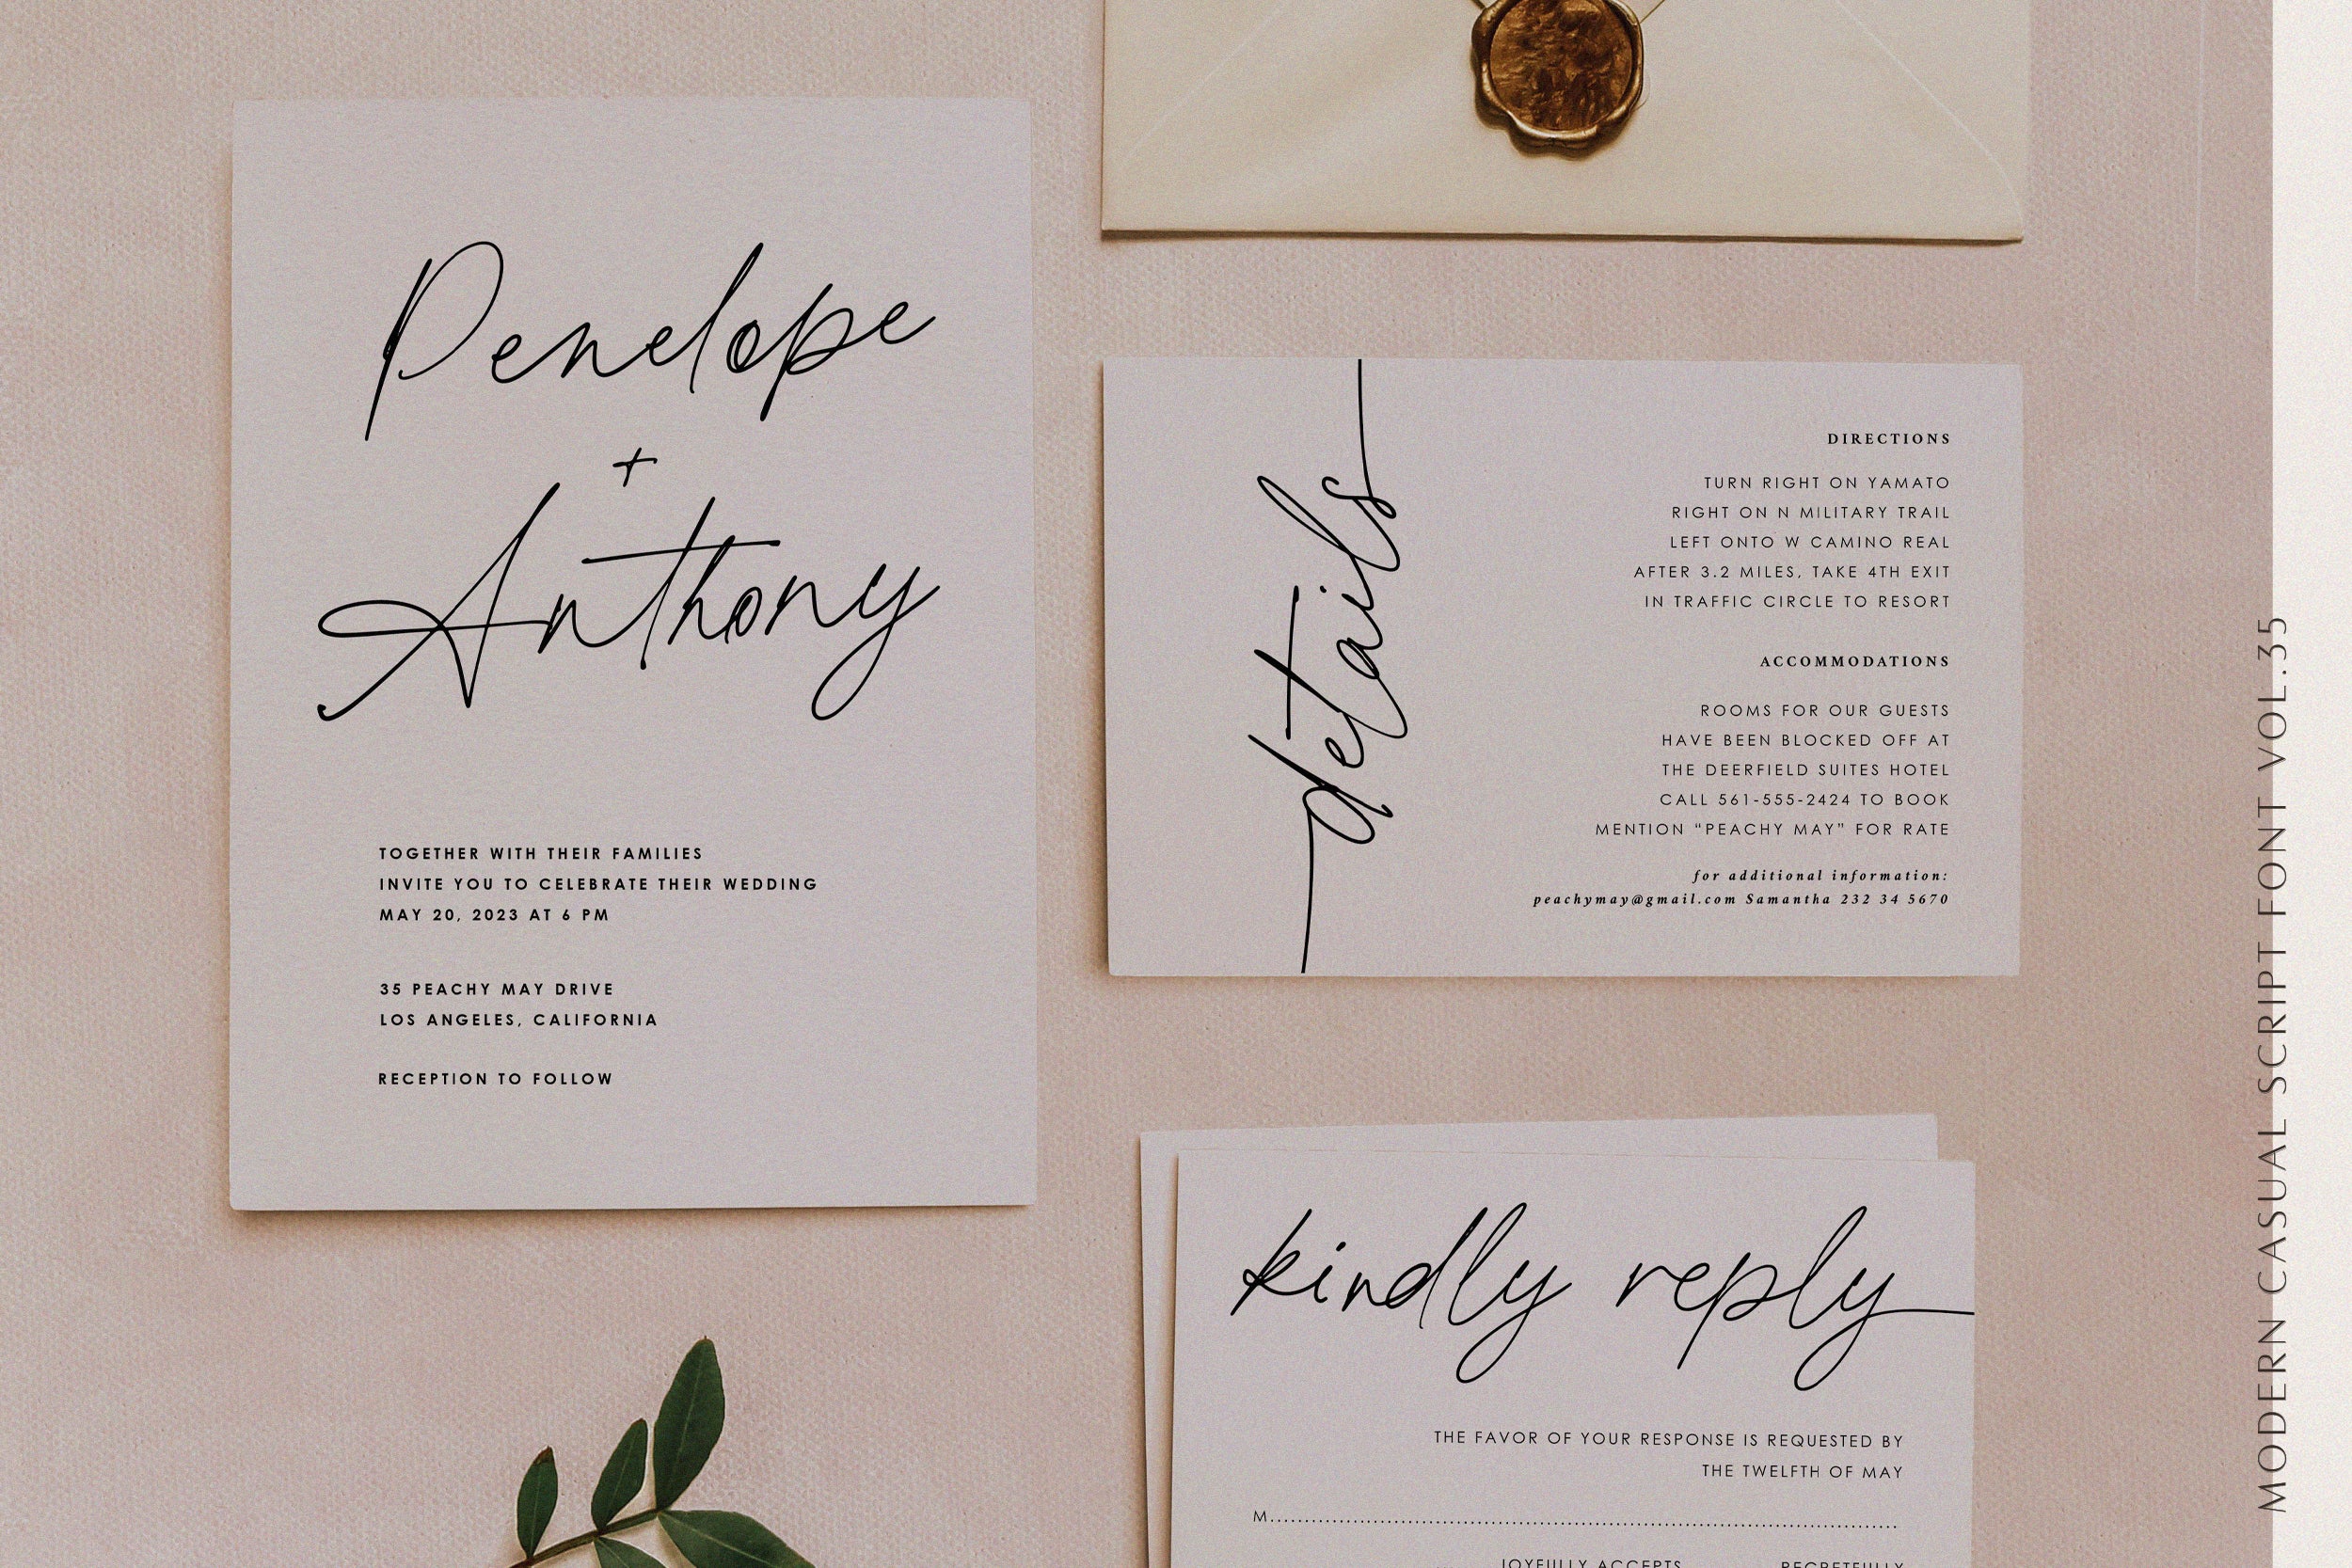 Penelope
+
Anthony
TOGETHER WITH THEIR FAMILIES
INVITE YOU TO CELEBRATE THEIR WEDDING
MAY 20, 2023 AT 6 PM
35 PEACHY MAY DRIVE
LOS ANGELES, CALIFORNIA
RECEPTION TO FOLLOW
details
DIRECTIONS
TURN RIGHT ON YAMATO
RIGHT ON N MILITARY TRAIL
LEFT ONTO W CAMINO REAL
AFTER 3.2 MILES, TAKE 4TH EXIT
IN TRAFFIC CIRCLE TO RESORT
ACCOMMODATIONS
ROOMS FOR OUR GUESTS
HAVE BEEN BLOCKED OFF AT
THE DEERFIELD SUITES HOTEL
CALL 561-555-2424 TO BOOK
MENTION “PEACHY MAY” FOR RATE
for additional information:
peachymay@gmail.com Samantha 232 34 5670
kindly reply
THE FAVOR OF YOUR RESPONSE IS REQUESTED BY
THE TWELFTH OF MAY
M
JOYFULLY ACCEPTS REGRETFULLY
MODERN CASUAL SCRIPT FONT VOL.35